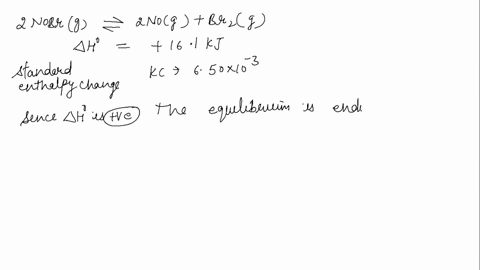 2 NOBr(g) ⇌ 2NO(g) + Br₂(g)
ΔH⁰ = +16.1 KJ
standard enthalpy change
KC → 6.50×10⁻³
sence ΔH⁰ is +ve The equilibrium is end